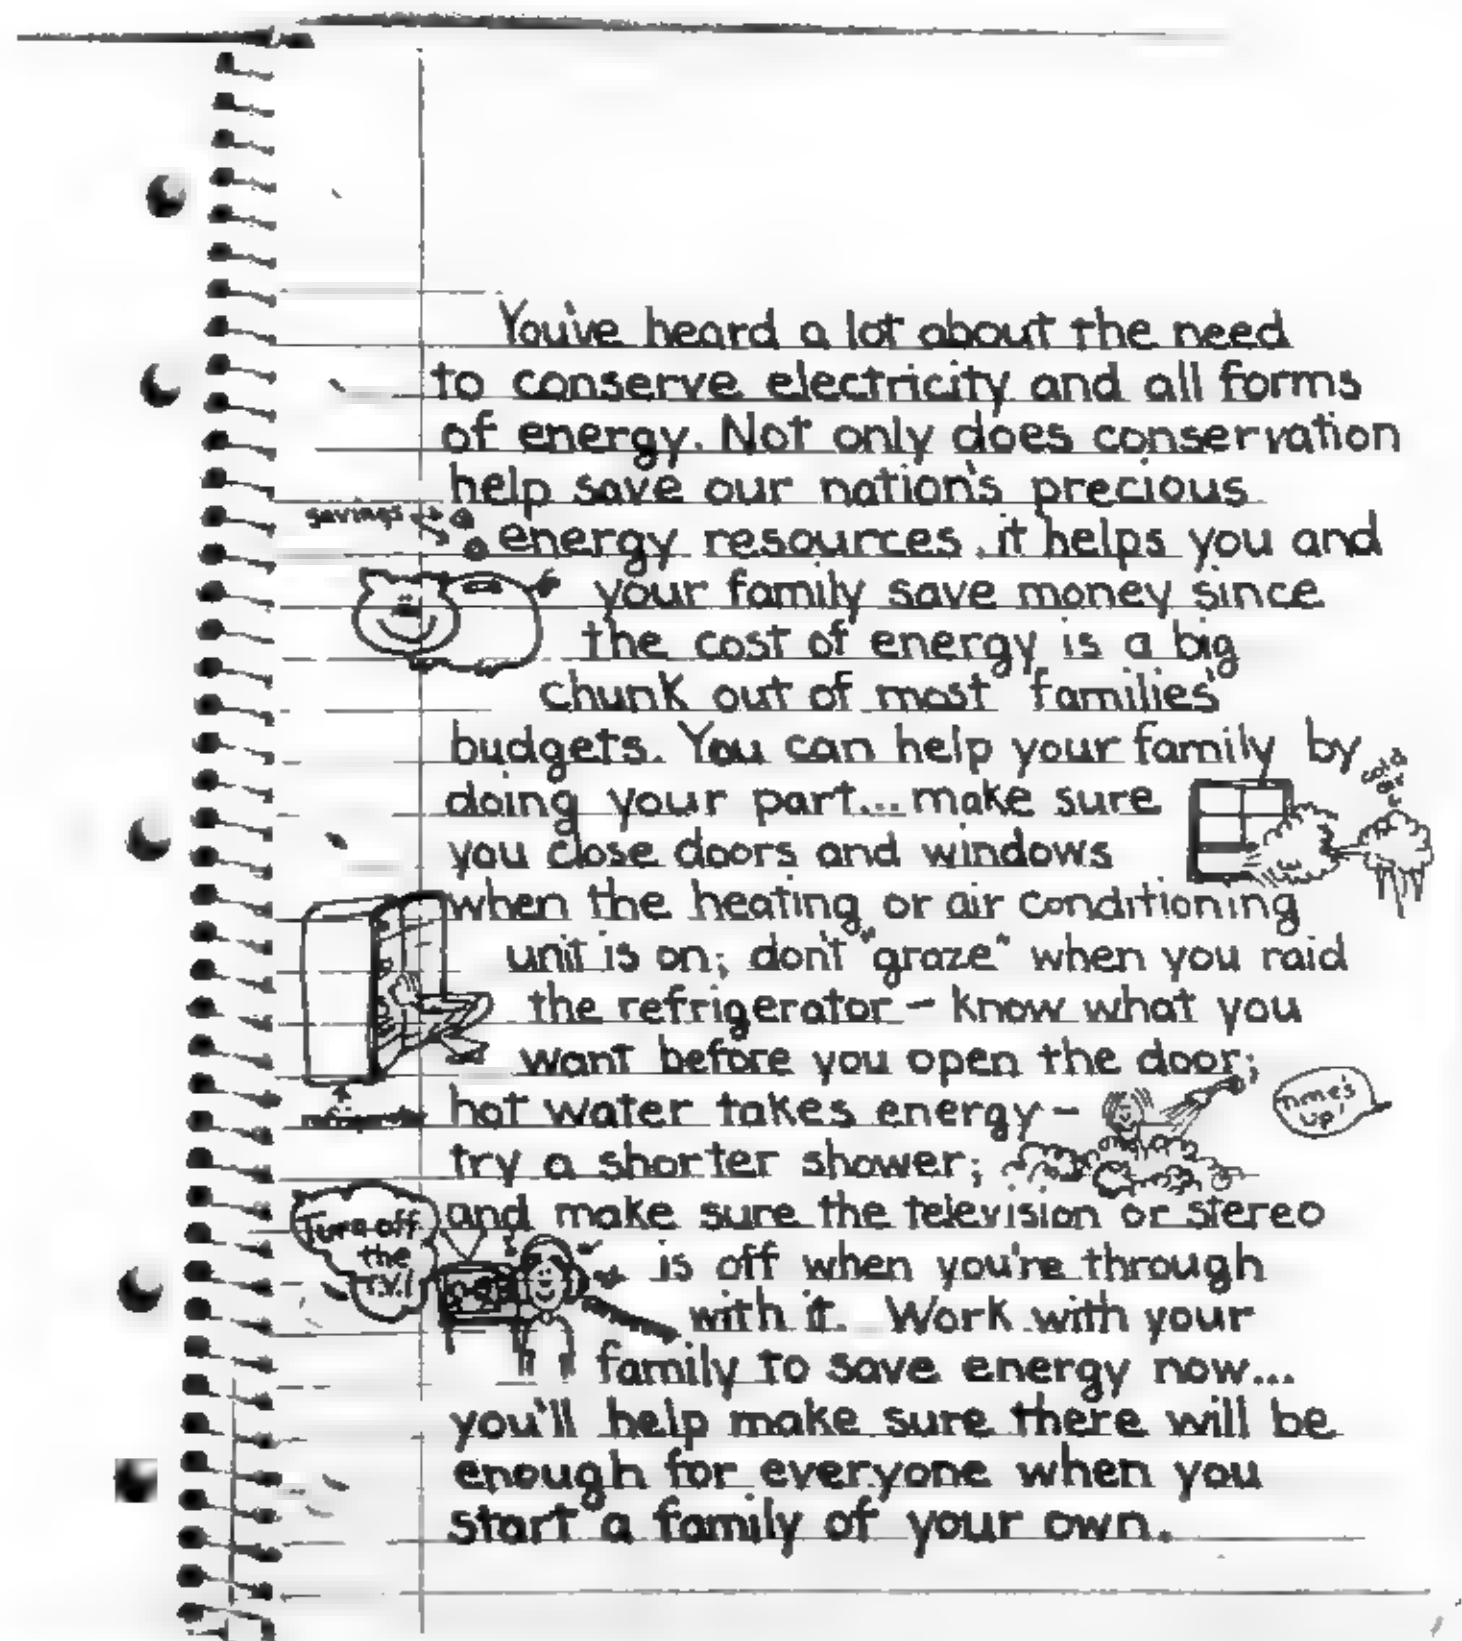 You've heard a lot about the need
to conserve electricity and all forms
of energy. Not only does conservation
help save our nation's precious
savings
energy resources, it helps you and
your family save money since
the cost of energy is a big
chunk out of most families'
budgets. You can help your family by
doing your part... make sure
you close doors and windows
when the heating or air conditioning
unit is on; don't "graze" when you raid
the refrigerator - know what you
want before you open the door;
hot water takes energy -
Time's
up!
try a shorter shower;
and make sure the television or stereo
Turn off
the
T.V.!
is off when you're through
with it. Work with your
family to save energy now...
you'll help make sure there will be
enough for everyone when you
start a family of your own.